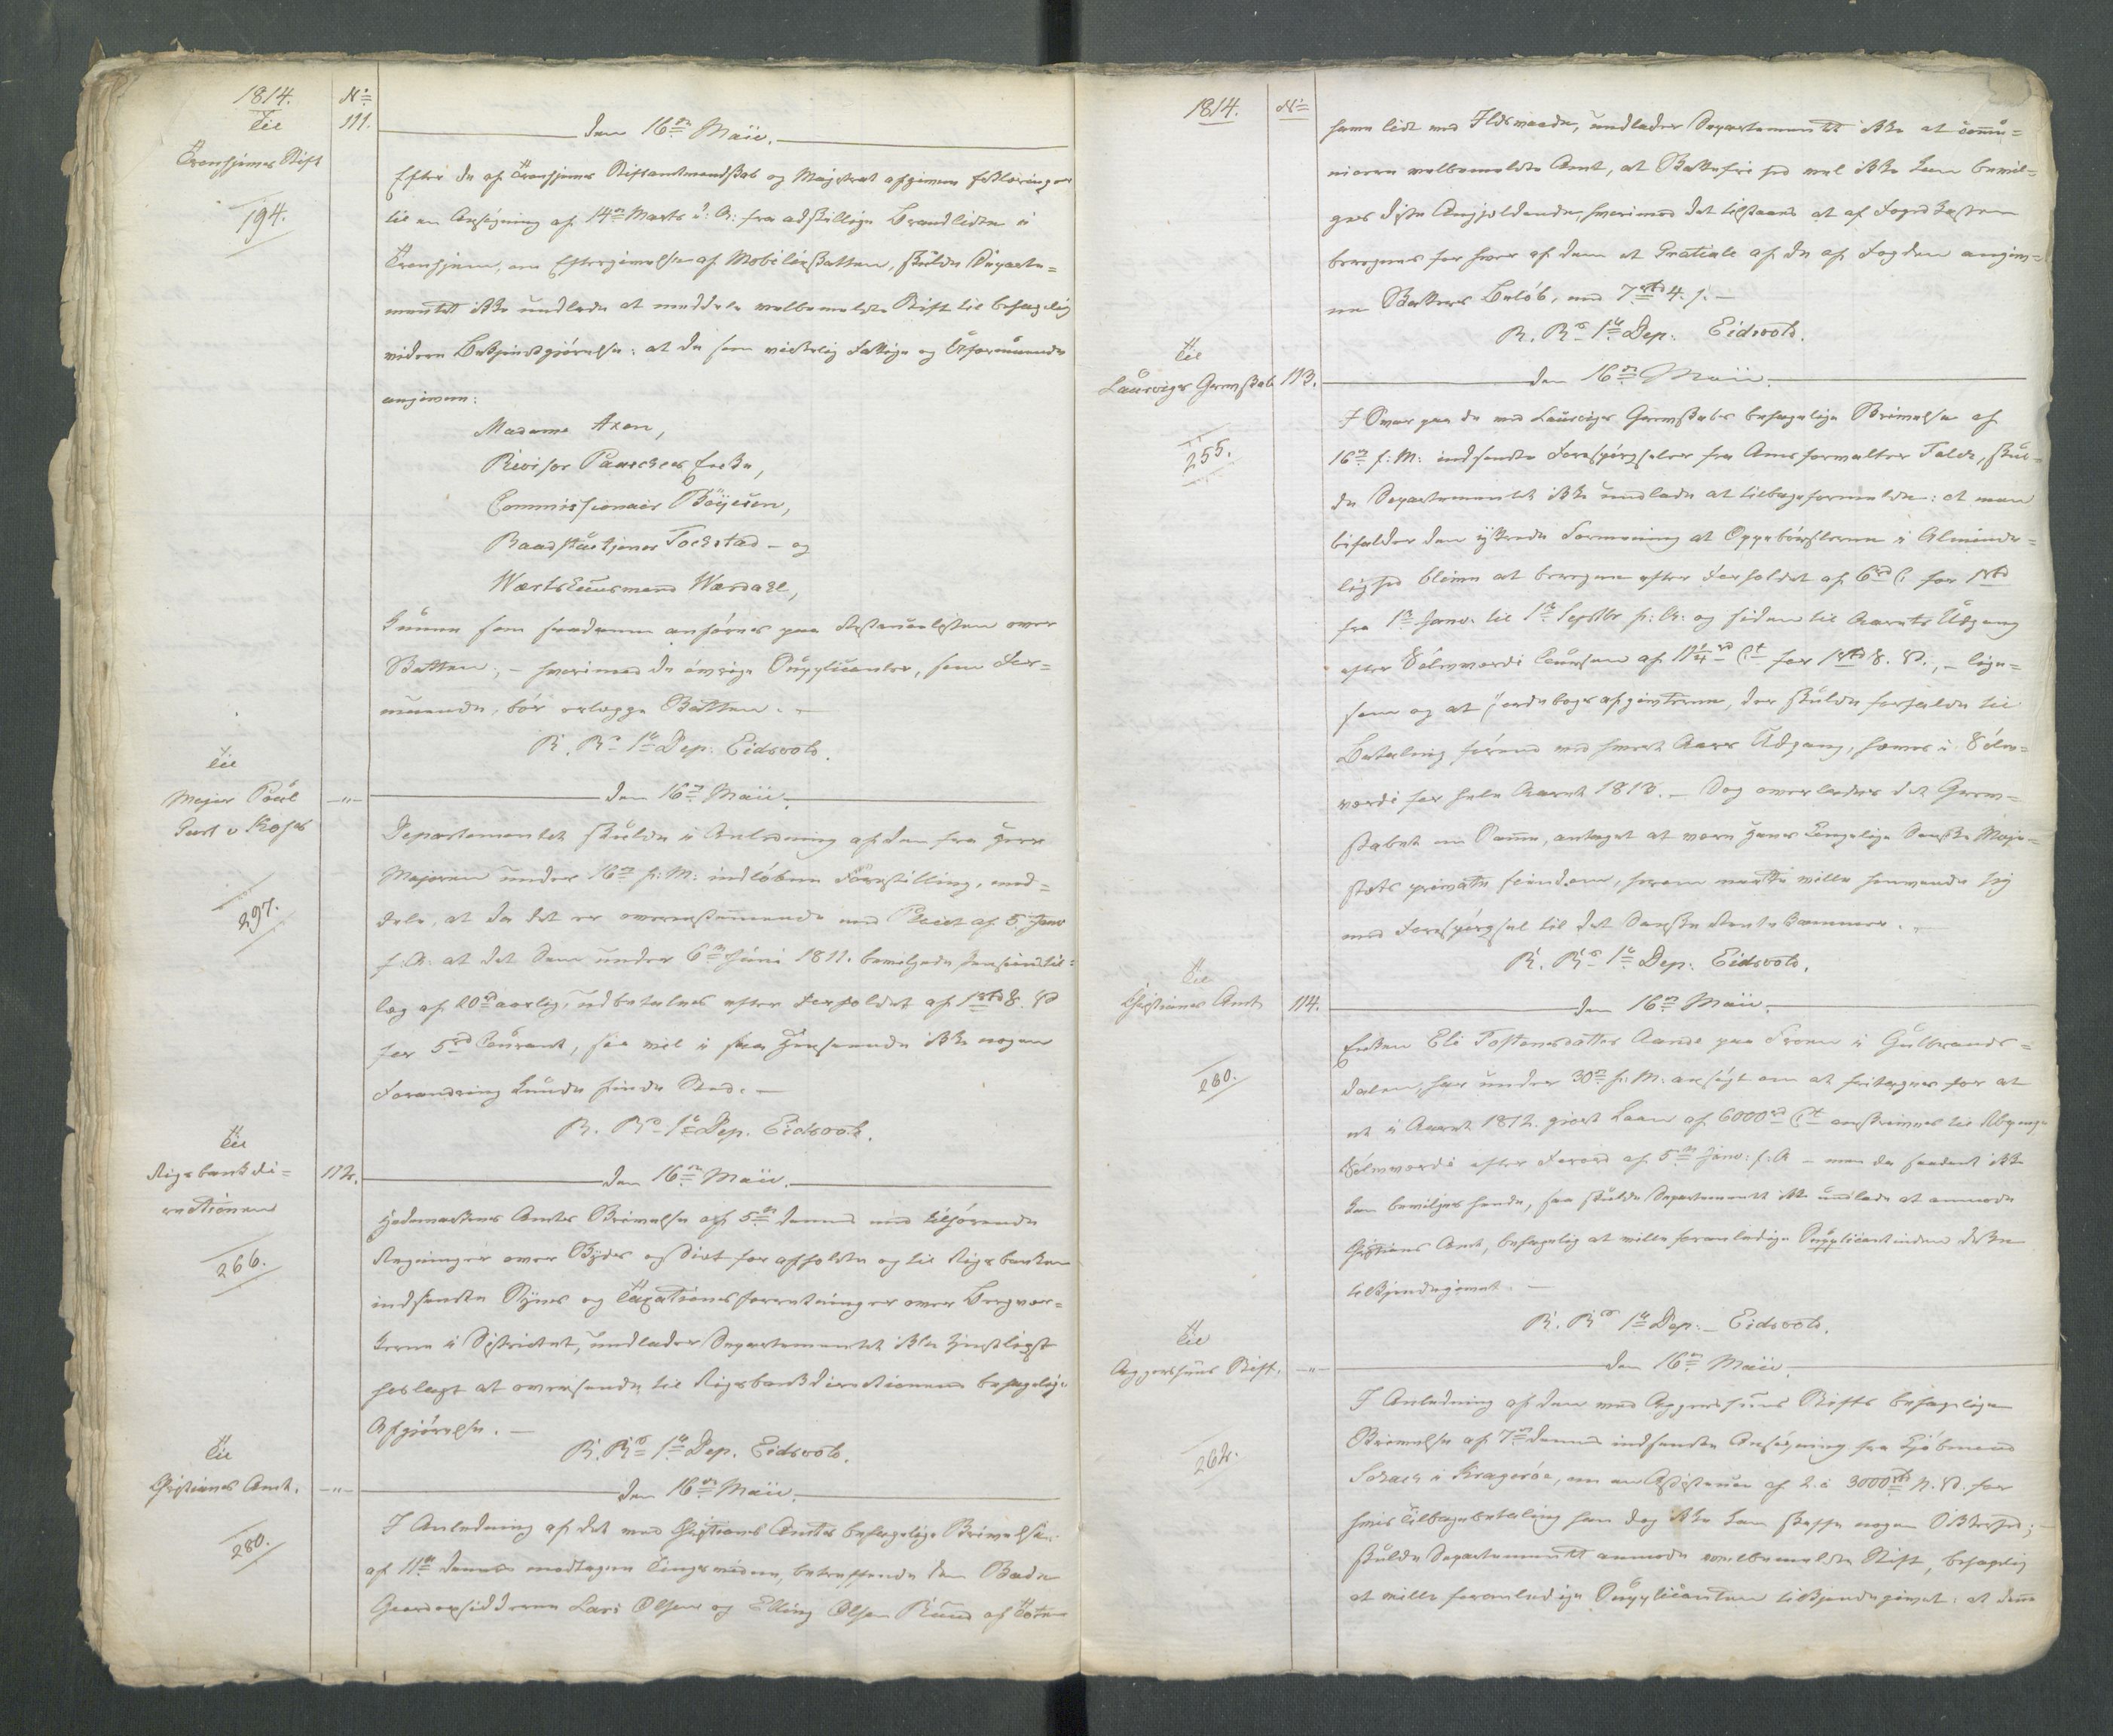 1814.
No
Til
111.
den 16de Maii.
Tronhjems Stift
194.
Efter de af Tronhjems Stiftamtmandskab og Magistrat afgivne Erklæringer
til en Ansøgning af 14de Marts d: A: fra adskillige Brandlidte i
Tronhjem, om Eftergivelse af Mobilieskatten, skulde Departe=
mentet ikke undlade at meddele velbemeldte Stift til behagelig
videre Bekjendtgjørelse: at de som virkelig Fattige og Uformuende
angivne:
Madame Axen,
Revisor Enke,
Commissionair Böÿesen,
Raadstuetjener Tockstad - og
Værtshuusmand Wærdahl,
kunne som saadanne anføres paa Restancelisten over
Skatten; - hvorimod de øvrige Supplicanter, som For=
muende, bør erlægge Skatten. -
R. Rs 1te Dep: Eidsvold.
Til
Major Poul
-"-
den 16de Maii.
297.
Departementet skulde i Anledning af den fra Herr
Majoren under 16de f: M: indløbne Forestilling, med=
dele, at da det er overensstemmende med Placat af 5. Janv
f: A: at det Dem under 6te Junii 1811. bevilgede Pensionstil=
læg af 20rd aarlig, udbetales efter Forholdet af 1rbd S. V.
for 5rd Courant, saa vil i saa Henseende ikke nogen
Forandring kunde finde Sted. -
R. Rs 1te Dep. Eidsvold.
Til
Rigsbankdi=
rectionen
112.
den 16de Maii.
266.
Hedemarkens Amts Skrivelse af 5te dennes med tilhørende
Regninger over Skyds og Diæt for afholdte og til Rigsbanken
indsendte Syns og Taxationsforretninger over Bergvær=
kerne i Districtet, undlader Departementet ikke hermed
hoslagt at oversende til Rigsbankdirectionens behagelige
Afgjørelse. -
R. Rs 1te Dep. Eidsvold.
Til
Christians Amt.
-"-
den 16de Maii.
280.
I Anledning af det med Christians Amts behagelige Skrivelse
af 11te dennes modtagne Tingsvidne, betreffende den Skade
Gaardopsidderne Lars Olsen og Elling Olsen Ruud af Toten
1814.
No
have lidt ved Ildsvaade, undlader Departementet ikke at commu=
nicere velbemeldte Amt, at Skattefrihed vel ikke kan bevil=
ges disse Angjældende, hvorimod det tilstaaes at af Fogedkassen
beregnes for hver af dem et Gratiale af de af Fogden angiv=
ne Skatters Beløb, med 7rbd 4. s. -
R. Rs 1te Dep: Eidsvold.
Til
Laurvigs Grevskab
113.
den 16de Maii.
255.
I Svar paa de med Laurvigs Grevskabs behagelige Skrivelse af
16de f: M: indsendte Forespørgseler fra Amtsforvalter Falck, skul=
de Departementet ikke undlade at tilbagemelde: at man
bifalder den yttrede Formening at Oppebørslerne i Alminde=
lighed blive at beregne efter Forholdet af 6rd Ct for 1rbd
fra 1te Janv: til 1te Septbr f: A: og siden til Aarets Udgang
efter Sølvværdi Coursen af 11 1/4rd Ct for 1rbd S. V., - lige=
som og at Jordebogsafgivterne, der skulde forfalde til
Betaling førend med hvert Aars Udgang, hæves i Sølv=
værdi for hele Aaret 1813. - Dog overlades det Grev=
skabet om Samme, antaget at være Hans Kongelige Danske Maje=
stæts private Eiendom, herom maatte ville henvende sig
med Forespørgsel til det Danske Rentekammer. -
R. Rs 1te Dep: Eidsvold.
Til
Christians Amt
114.
den 16de Maii.
260.
Enken Eli Tostensdatter Aande paa Froen i Gulbrands=
dalen, har under 30te f: M: ansøgt om at fritages for at
et i Aaret 1812. gjort Laan af 6000rd Ct omskrives til
Sølvværdi efter Forord: af 5te Janv: f: A - men da saadant ikke
kan bevilges hende, saa skulde Departementet ikke undlade at anmode
Christians Amt, behagelig at ville foranledige Supplicantinden dette
tilkjendegivet. -
R. Rs 1te Dep: Eidsvold.
Til
Aggershuus Stift.
-"-
den 16de Maii.
262.
I Anledning af den med Aggershuus Stifts behagelige
Skrivelse af 7de dennes indsendte Ansøgning fra Kjøbmand
i Kragerøe, om en Assistance af 2. á 3000rbd N. V. for
hvis Tilbagebetaling han dog ikke kan skaffe nogen Sikkerhed; -
skulde Departementet anmode velbemeldte Stift, behagelig
at ville foranledige Supplicanten tilkjendegivet: at denne